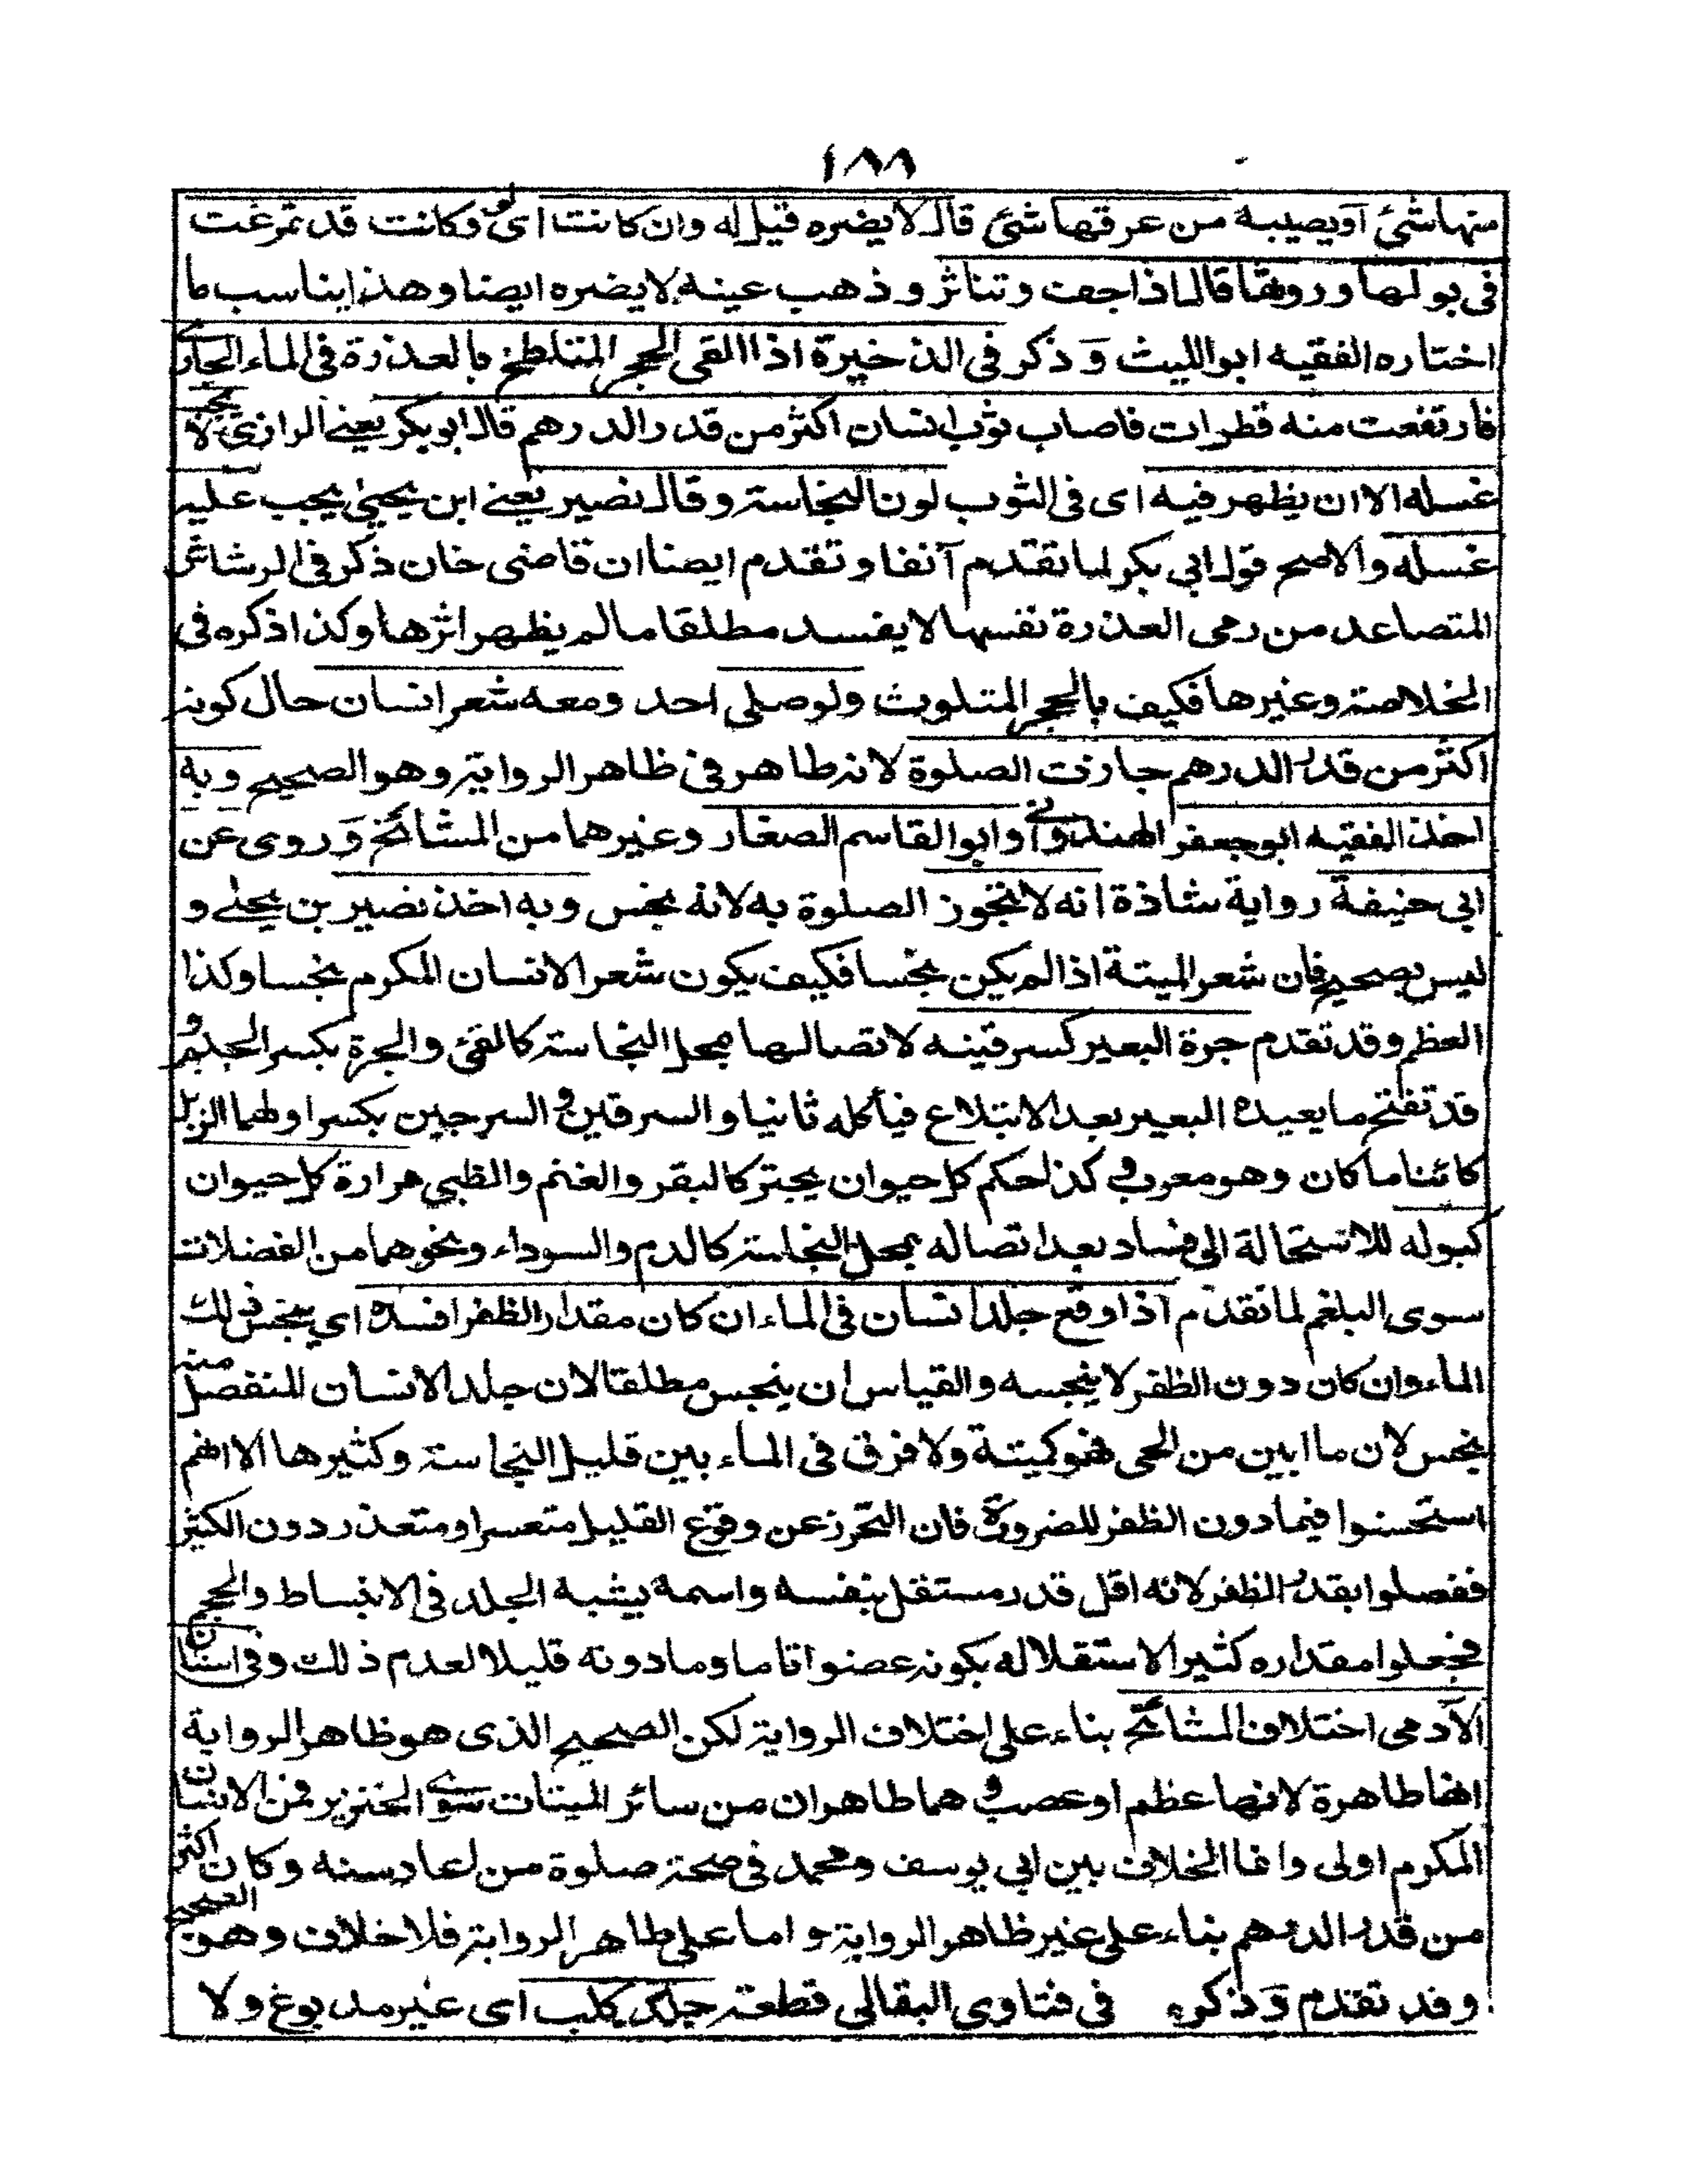 ١٨٨
منها شئ اويصيبه من عرقها شئ قال لا يضره قيل له وان كانت اى لو وكانت قد تمرغت
فى بولها وروثها قال اذا جفت وتناثر وذهب عينه لا يضره ايضا وهذا يناسب ما
اختاره الفقيه ابو الليث وذكر فى الذخيرة اذا القى الحجر المتلطخ بالعذرة فى الماء الجارى
فارتفعت منه قطرات فاصاب ثوب انسان اكثر من قدر الدرهم قال ابو بكر يعنى الرازى لا يجب
غسله الا ان يظهر فيه اى فى الثوب لون النجاسة وقال نصير يعنى ابن يحيى يجب عليه
غسله والاصح قول ابى بكر لما تقدم آنفا وتقدم ايضا ان قاضى خان ذكر فى الرشاش
المتصاعد من رمى العذرة نفسها لا يفسد مطلقا مالم يظهر اثرها وكذا ذكره فى
الخلاصة وغيرها فكيف بالحجر المتلوث ولو صلى احد ومعه شعر انسان حال كونه
اكثر من قدر الدرهم جازت الصلوة لانه طاهر فى ظاهر الرواية وهو الصحيح وبه
اخذ الفقيه ابو جعفر الهندوانى وابو القاسم الصفار وغيرهما من المشائخ وروى عن
ابى حنيفة رواية شاذة انه لا تجوز الصلوة به لانه نجس وبه اخذ نصير بن يحيى و
ليس بصحيح فان شعر الميتة اذا لم يكن نجسا فكيف يكون شعر الانسان المكرم نجسا وكذا
العظم وقد تقدم جرة البعير كسرقينه لاتصالها بمحل النجاسة كالقئ والجرة بكسر الجيم و
قد تفتح ما يعيده البعير بعد الابتلاع فيأكله ثانيا والسرقين والسرجين بكسر اولهما الزبل
كائنا ما كان وهو معرب وكذا حكم كل حيوان يجتر كالبقر والغنم والظبى مرارة كل حيوان
كبوله للاستحالة الى فساد بعد اتصاله بمحل النجاسة كالدم والسوداء ونحوهما من الفضلات
سوى البلغم لما تقدم اذا وقع جلد انسان فى الماء ان كان مقدار الظفر افسده اى ينجس ذلك
الماء وان كان دون الظفر لا ينجسه والقياس ان ينجس مطلقا لان جلد الانسان المنفصل منه
نجس لان ما ابين من الحى فهو كميتة ولا فرق فى الماء بين قليل النجاسة وكثيرها الا انهم
استحسنوا فيما دون الظفر للضرورة فان التحرز عن وقوع القليل متعسر او متعذر دون الكثير
ففصلوا بقدر الظفر لانه اقل قدر مستقل بنفسه واسمه يشبه الجلد فى الانبساط والحجم
فجعلوا مقداره كثيرا لاستقلاله بكونه عضوا تاما وما دونه قليلا لعدم ذلك وفى اسنان
الآدمى اختلاف المشائخ بناء على اختلاف الرواية لكن الصحيح الذى هو ظاهر الرواية
انها طاهرة لانها عظم او عصب وهما طاهران من سائر الميتات سوى الخنزير فمن الانسان
المكرم اولى وانما الخلاف بين ابى يوسف ومحمد فى صحة صلوة من اعاد سنه وكان اكثر
من قدر الدرهم بناء على غير ظاهر الرواية واما على ظاهر الرواية فلا خلاف وهو الصحيح
وقد تقدم وذكره فى فتاوى البقالى قطعة جلد كلب اى غير مدبوغ ولا